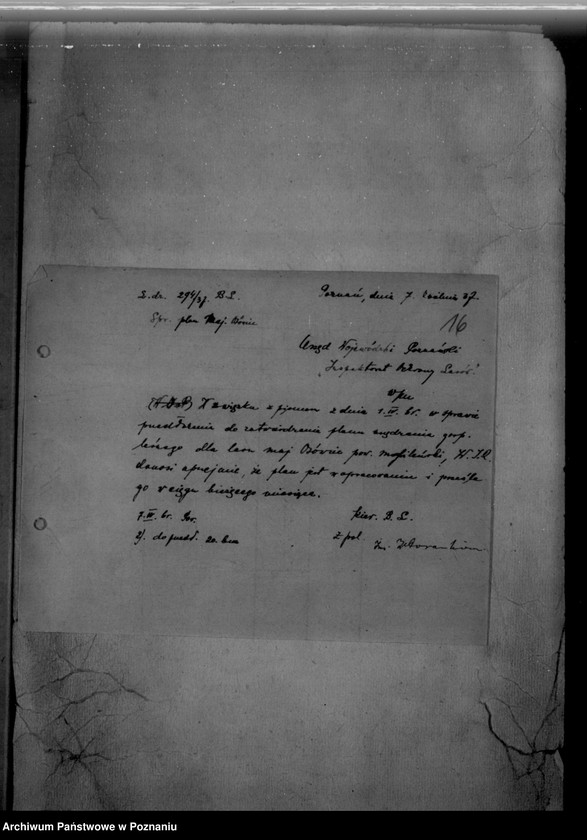 L.dz. 294/37 B.L. Poznań, dnia 7. kwietnia 37.
Spr. plan Maj.
16
Urząd Wojewódzki Poznański
Inspektorat Ochrony Lasów
W związku z pismem z dnia 1.IV. br. w sprawie
przedłożenia do zatwierdzenia planu urządzenia gosp.
leśnego dla lasu maj. pow. W.I.R.
donosi uprzejmie, że plan jest w opracowaniu i prześle
go w ciągu bieżącego miesiąca.
7.IV. br. Kier. B.L.
2/. do przedł. 20. bm z pol.
Inż.
Archiwum Państwowe w Poznaniu